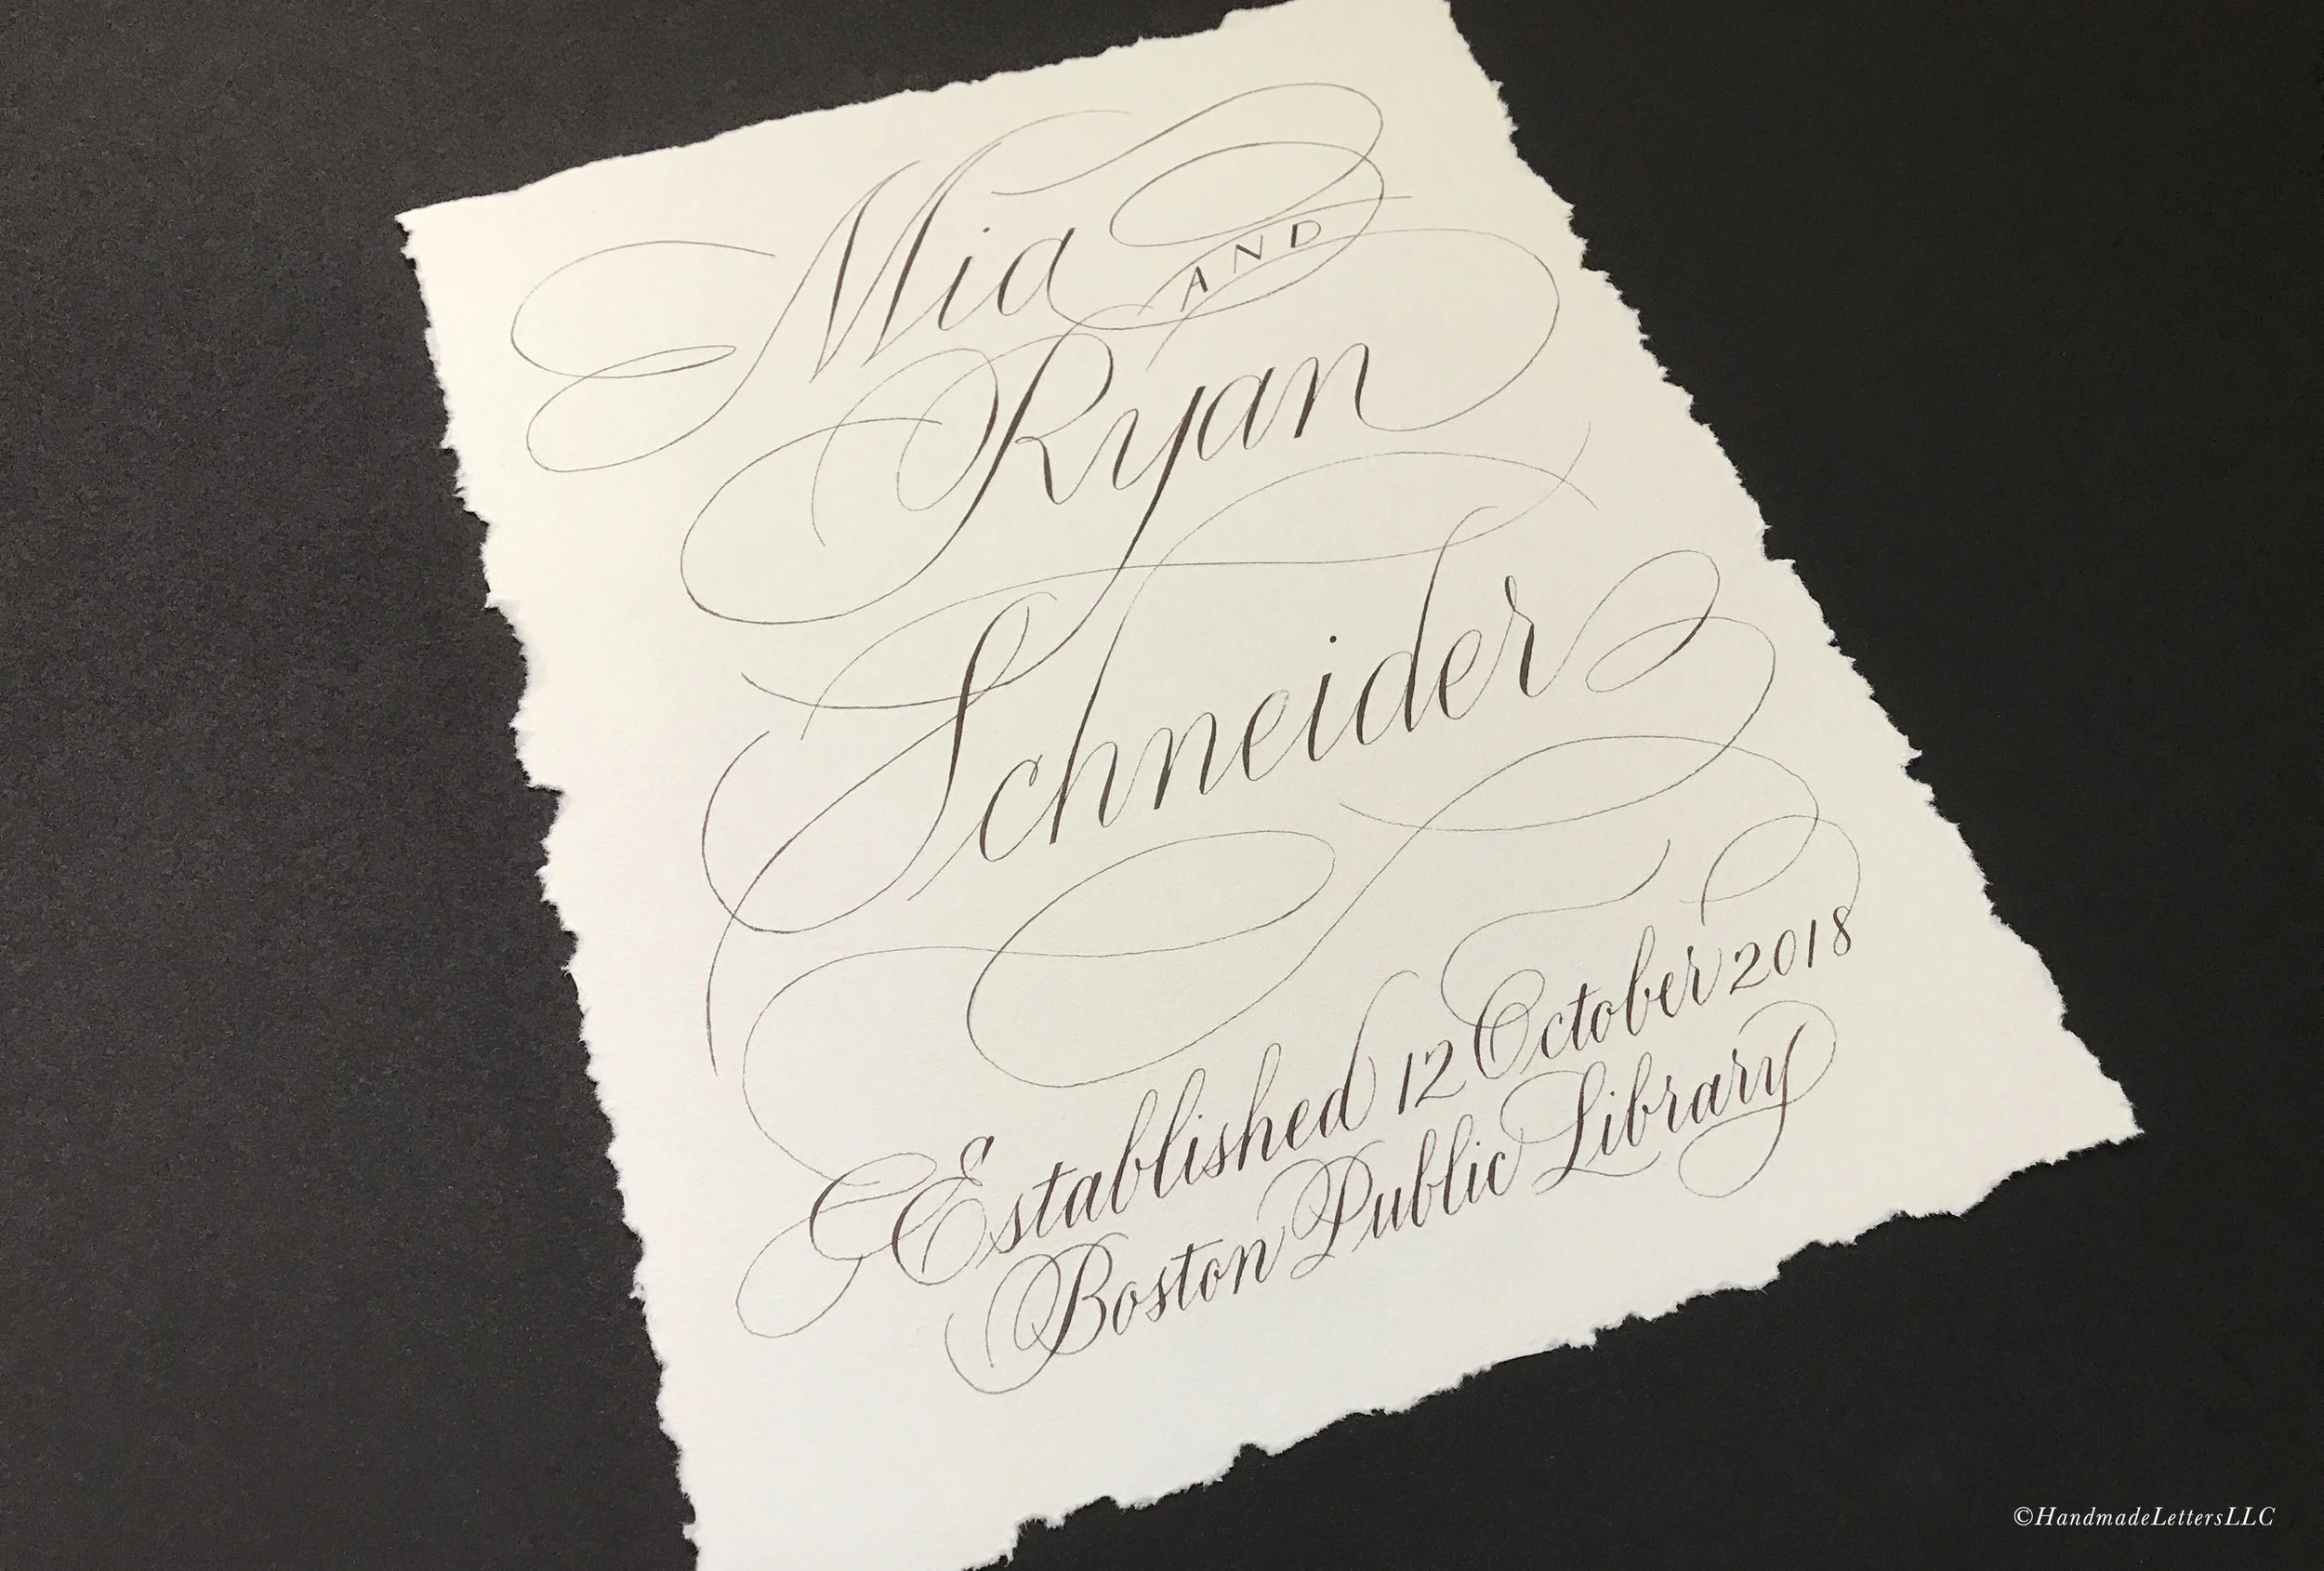 Mia AND
Ryan
Schneider
Established 12 October 2018
Boston Public Library
©HandmadeLettersLLC